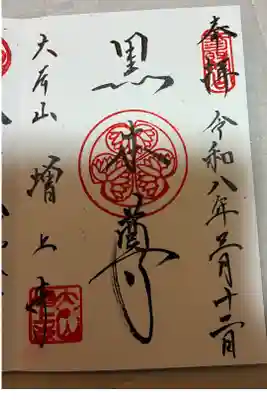 奉拝 令和八年三月十二日
黒本尊
大本山 増上寺